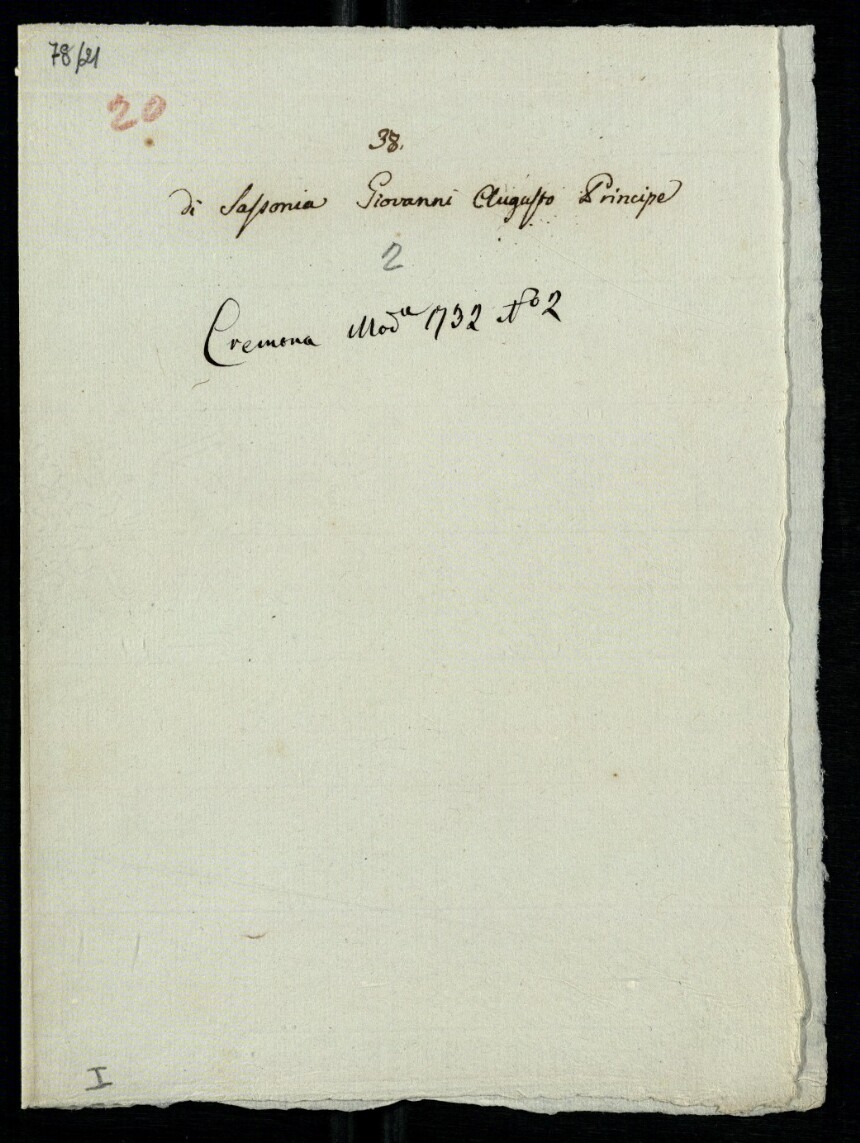 78/21
20
38.
di Sassonia Giovanni Augusto Principe
2
Cremona Mod.a 1732 No 2
I